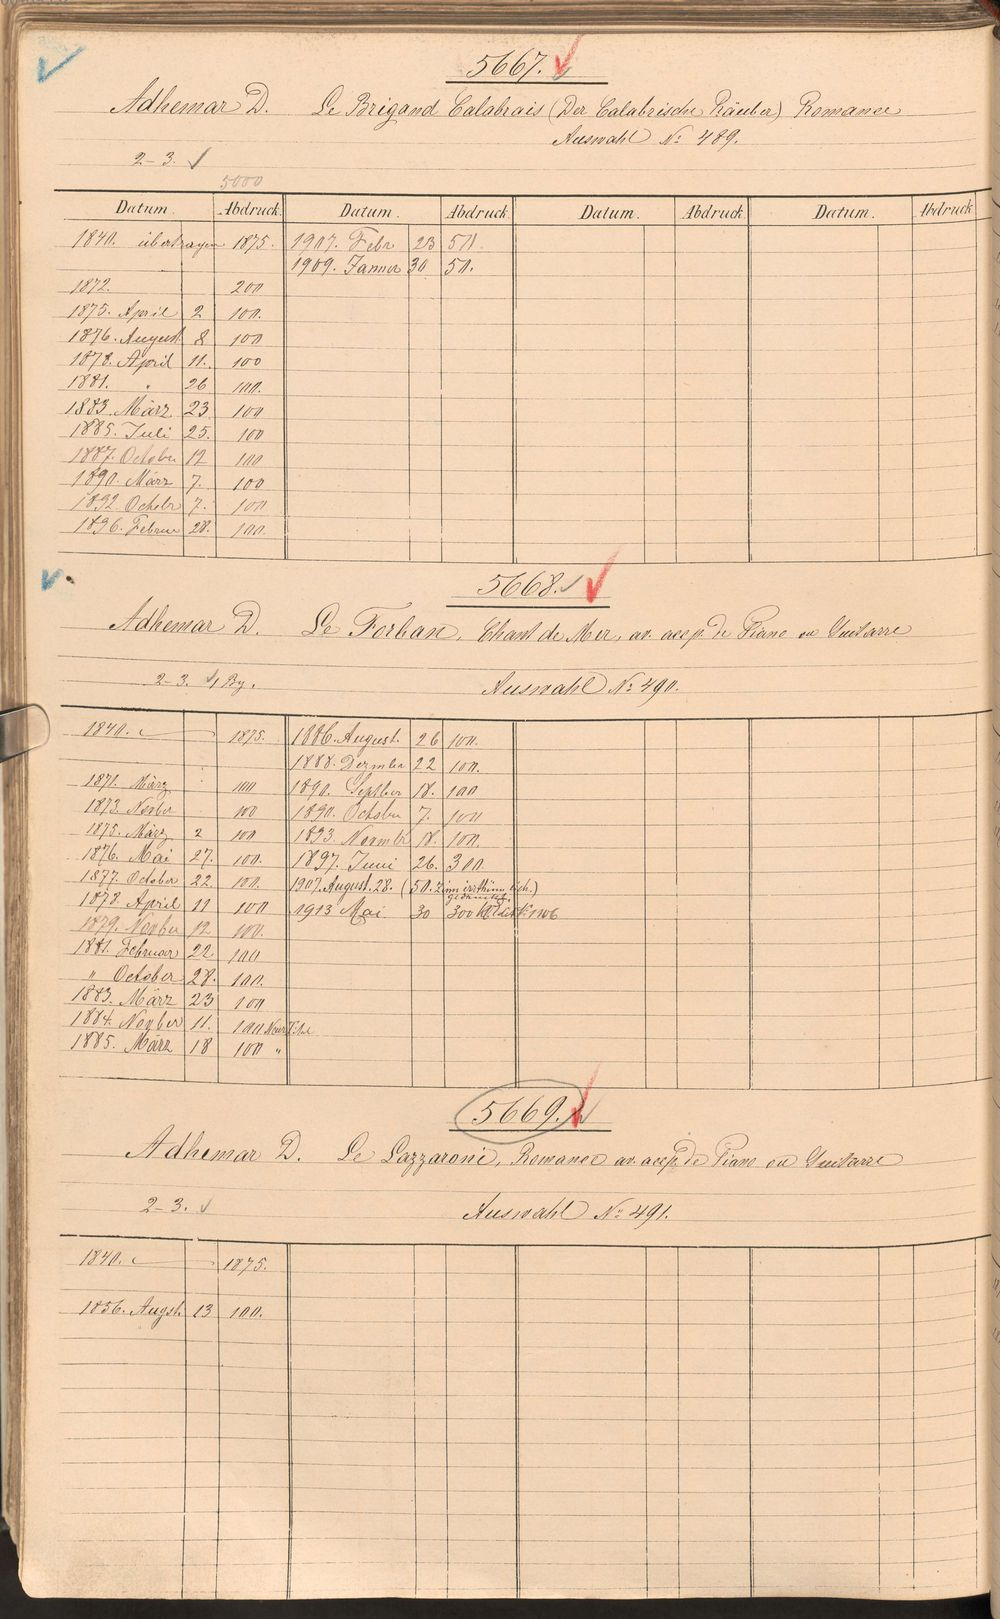 5667.
Adhemar D. Le Brigand Calabrais (Der Calabrische Räuber) Romance
Auswahl No 489.
2-3. ✓
5000
Datum. Abdruck. Datum. Abdruck. Datum. Abdruck. Datum. Abdruck.
1840. übertragen 1875. 1907. Febr 23 50.
1909. Janner 30 50.
1872. 200
1875. April 2 100.
1876. August 8 100
1878. April 11. 100
1881. " 26 100.
1883. März 23 100
1885. Juli 25. 100
1887. October 12 100
1890. März 7. 100
1892. October 7. 100
1896. Februar 28. 100.
5668.
Adhemar D. Le Forban, Chant de Mer, av. accp. de Piano ou Guitarre
2-3. ✓ 1 By. Auswahl No 490.
1840. 1875. 1886. August. 26 100.
1888. Dezmber 22 100.
1871. März 100 1890. Septber 18. 100
1873. Novber 100 1890. October 7. 100
1875. März 2 100 1893. Novmbr 18. 100.
1876. Mai 27. 100. 1897. Juni 26. 300.
1877. October 22. 100. 1907. August. 28. (50.
1878. April 11 100 1913 Mai 30 300
1879. Novber 12 100.
1881. Februar 22 100
" October 28. 100.
1883. März 23 100
1884. Novber 11. 100
1885. März 18 100 "
5669.
Adhemar D. Le Lazzarone, Romance av. accp. de Piano ou Guitarre
2-3. ✓ Auswahl No 491.
1840. 1875.
1856. Augst. 13 100.